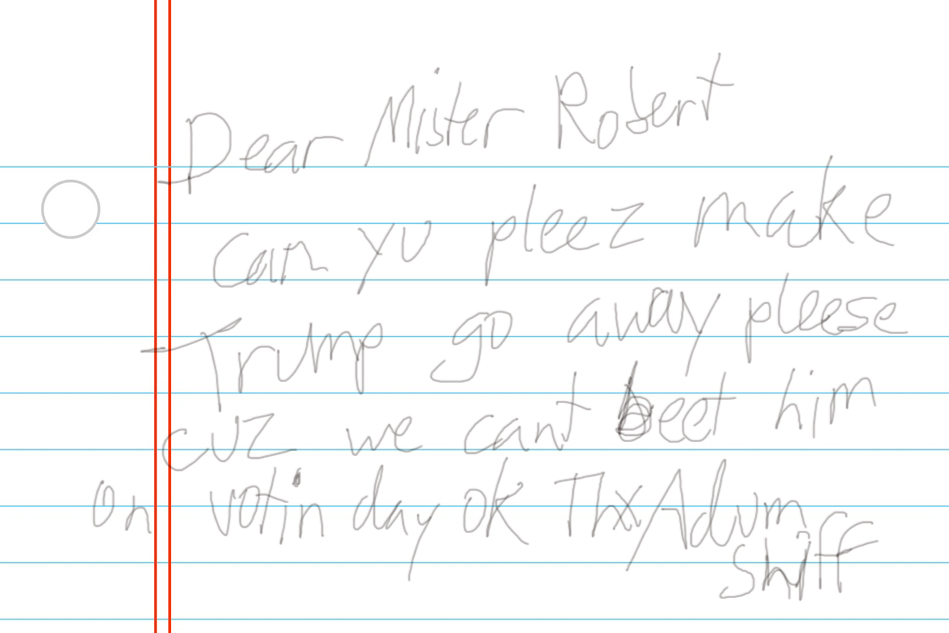 Dear Mister Robert
can yu pleez make
Trump go away pleese
cuz we cant beet him
on votin day ok Thx Adum
shiff